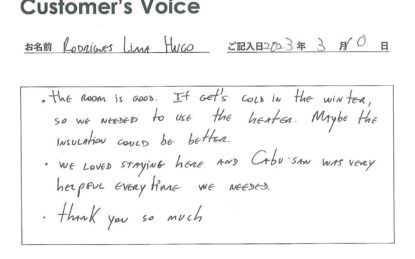 Customer's Voice
お名前 Rodrigues Lima Hugo ご記入日2023年 3 月10 日
・the room is good. It get's cold in the winter,
so we needed to use the heater. Maybe the
insulation could be better.
・we loved staying here and Cabu-san was very
helpful everytime we needed.
・thank you so much